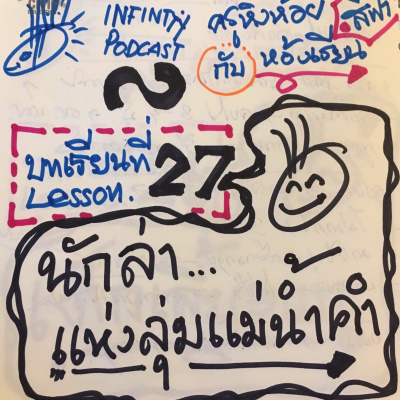 INFINITY
PODCAST
ครูหิ่งห้อย
กับ ห้องเรียน สีฟ้า
บทเรียนที่
Lesson. 27
นักล่า...
แห่งลุ่มแม่น้ำคำ